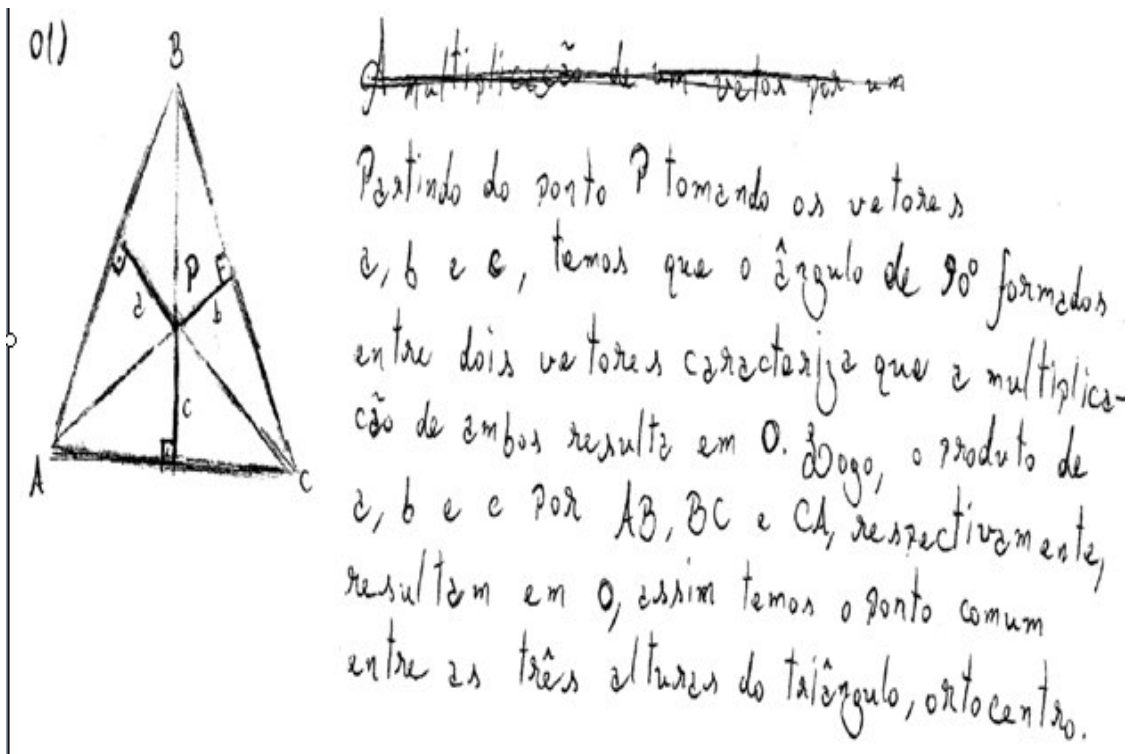 01)
B
A multiplicação de um vetor por um
Partindo do ponto P tomando os vetores
a, b e c, temos que o ângulo de 90° formados
entre dois vetores caracteriza que a multiplica-
ção de ambos resulta em 0. Logo, o produto de
a, b e c por AB, BC e CA, respectivamente,
resultam em 0, assim temos o ponto comum
entre as três alturas do triângulo, ortocentro.
P
a
b
c
A
C